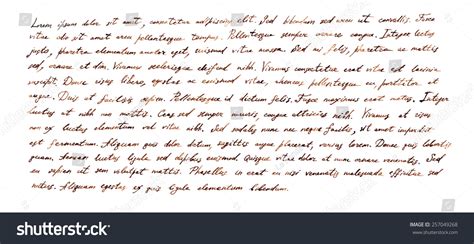 Lorem ipsum dolor sit amet, consectetur adipiscing elit. Sed a bibendum sem, viverra ut convallis. Fusce
vitae odio sit amet enim pellentesque tempus. Pellentesque semper ornare congue. Integer lectus
justo, pharetra elementum auctor eget, euismod vitae massa. Sed an felis, pharetra ac mattis
sed, ornare et dolor. Vivamus scelerisque eleifend nibh. Vivamus consectetur erat vitae est lacinia
suscipit. Donec risus libero, egestas ac euismod vitae, rhoncus pellentesque ex, porttitor at
augue. Duis at facilisis sapien. Pellentesque id dictum felis. Fusce maximus erat mattis. Integer
luctus at nibh non mattis. Cras sed semper mauris, congue ultricies nibh. Vivamus ut nisi non
ex luctus elementum vel vitae nibh. Sed sodales nunc nec neque facilis, ut aliquet enim consequat
eget fermentum. Aliquam quis dolor dictum, sagittis augue placerat, varius lorem. Donec quis lobortis
quam. Aenean luctus ligula sed dapibus euismod. Quisque vitae dolor at nunc ornare venenatis. Sed
eu sapien sit sem volutpat mattis. Phasellus in erat et turpis venenatis malesuada efficitur sed
metus. Aliquam egestas ex quis ligula elementum bibendum.
shutterstock
www.shutterstock.com · 257049268